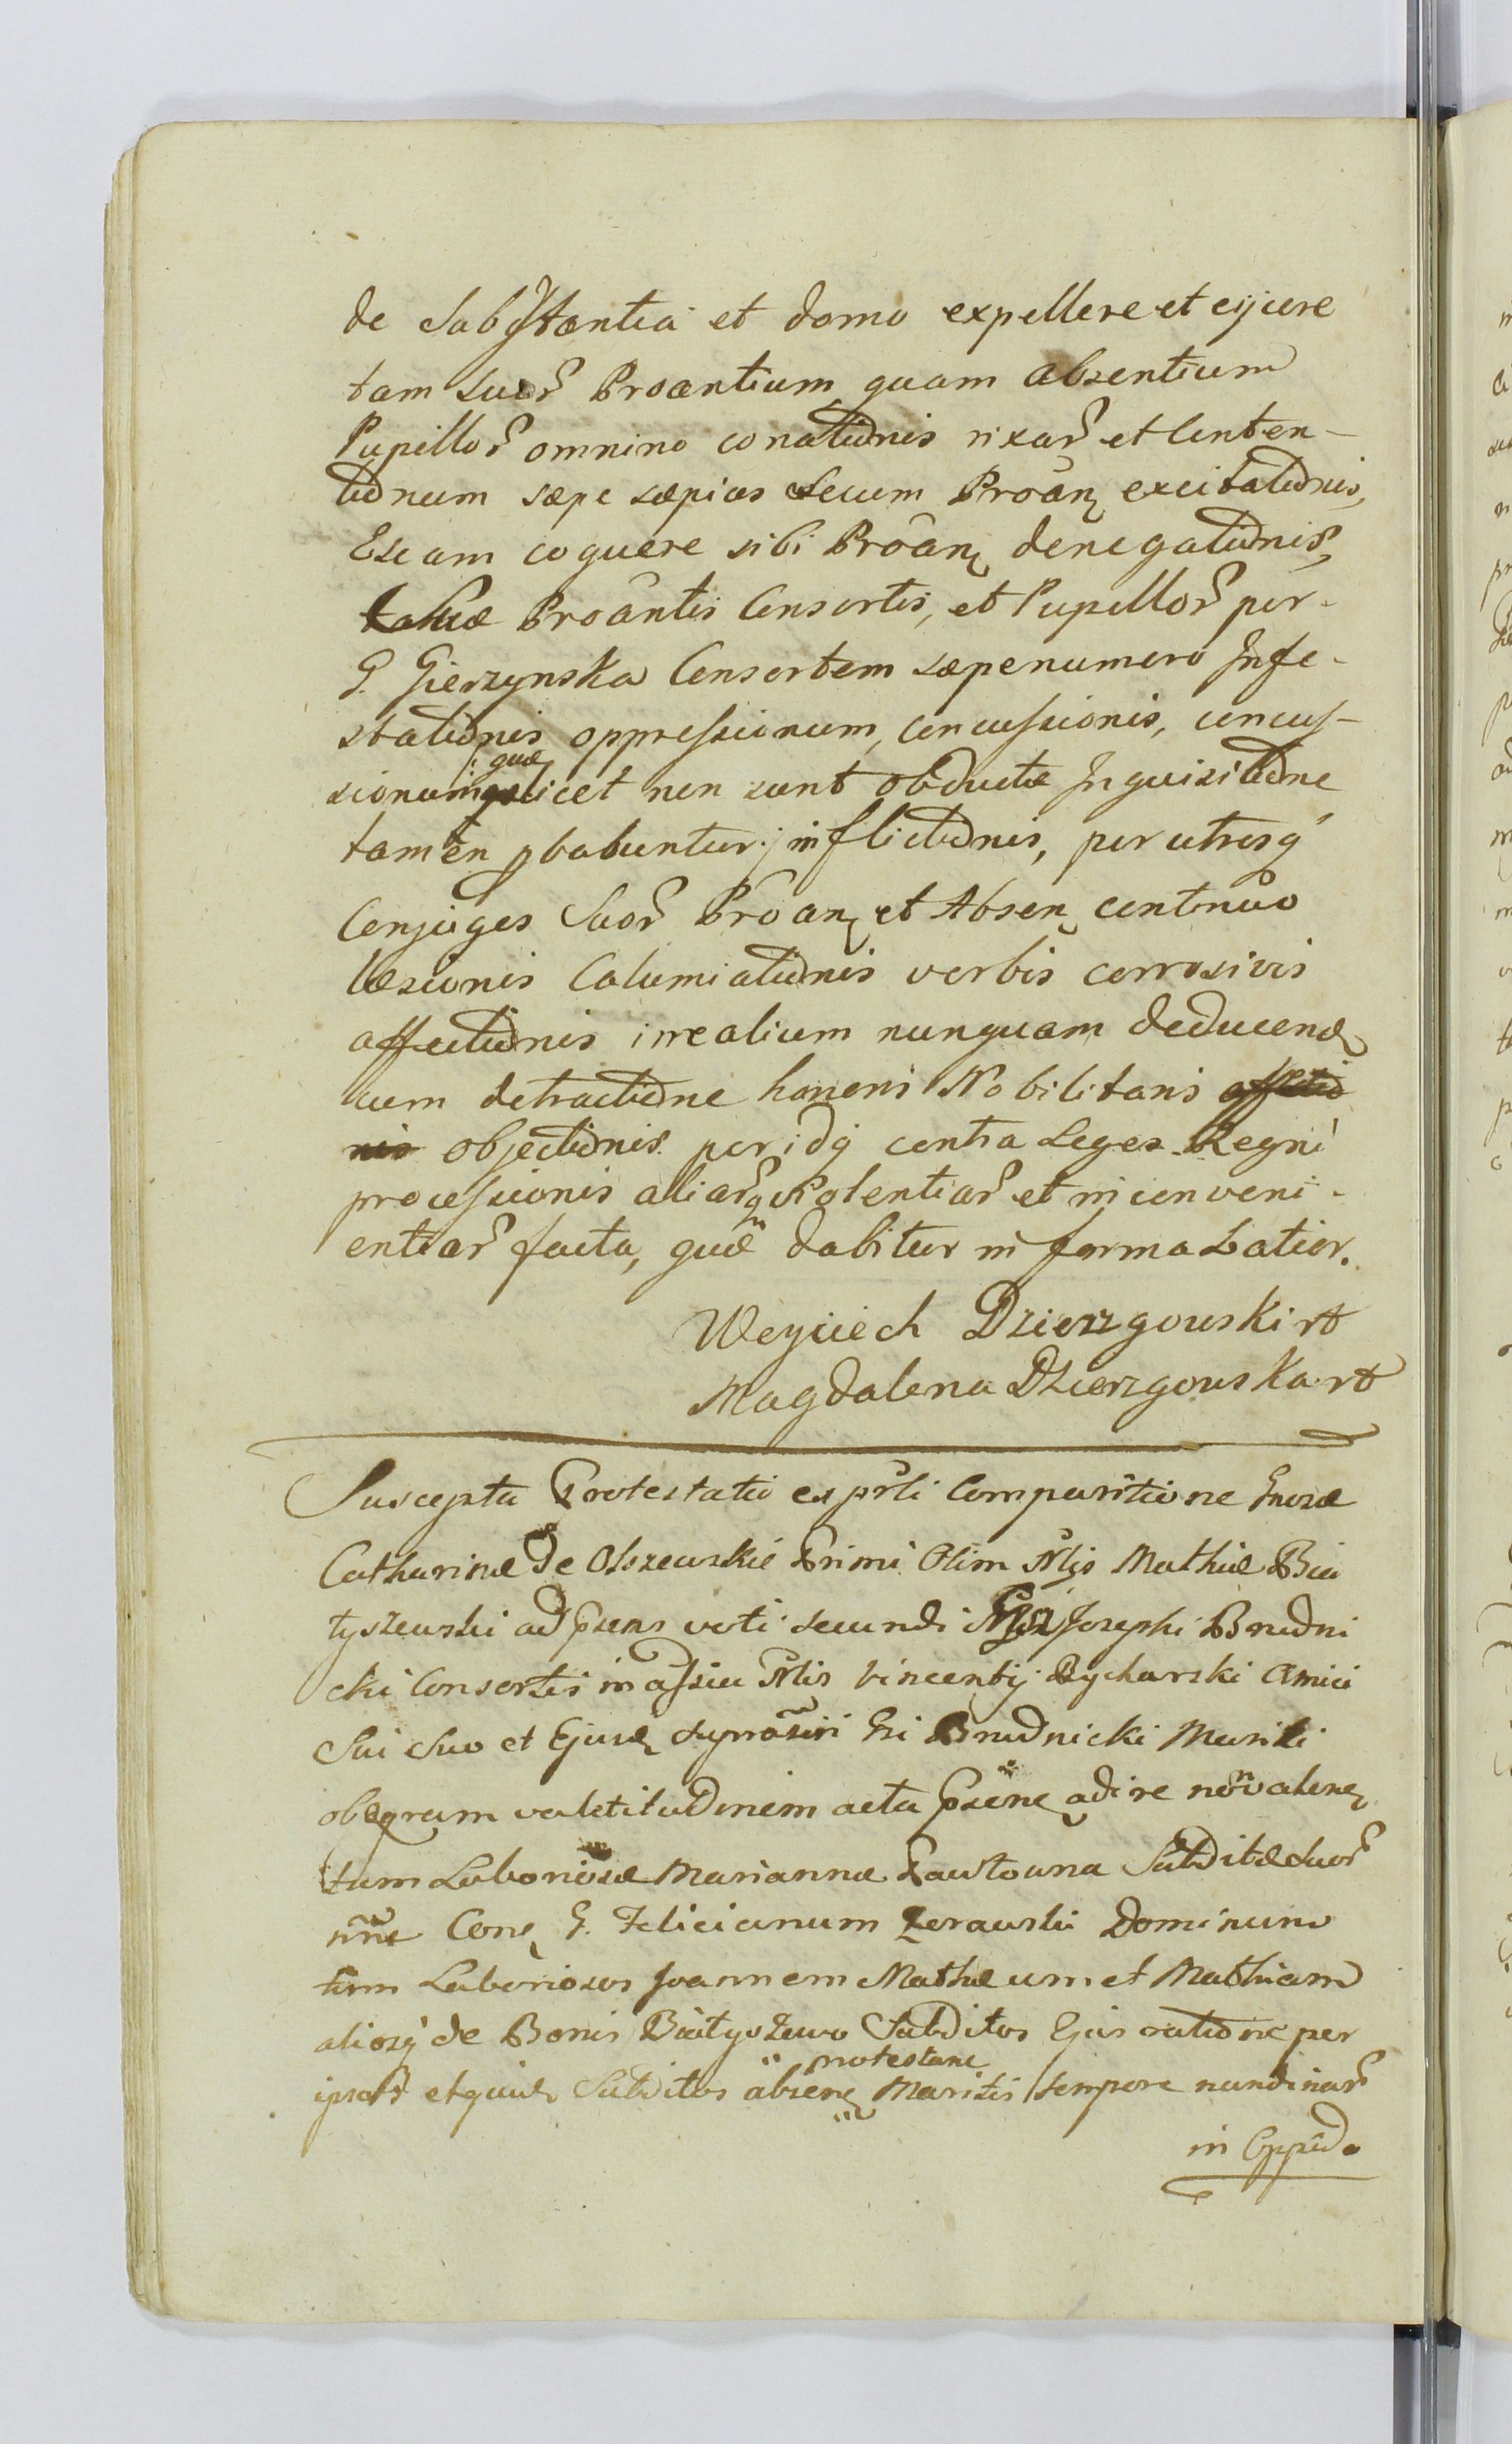 de Substantia et domo expellere et eijcere
tam suor Proantium quam absentium
Pupillor omnino conationis rixar et Conten-
tionum sæpe sæpius secum Proan excitationis,
Escam coquere sibi Proan denegationis,
Proantis Consortis, et Pupillor per
G. Gierzynska Consortem sæpenumero Infe-
stationis oppressionum, concussionis, concus-
sionum quæ licet non sunt obductæ Inquisitione
tamen pbabuntur inflictionis, per utrosq
Conjuges Suor Proan et Absen continuo
læsionis Calumiationis verbis corrosivis
affectionis irrealium nunquam deducend
cum detractione honoris Nobilitaris
objectionis peridq contra Leges Regni
processionis aliarq Violentiar et inconveni-
entiar facta, quæ dabitur in forma Latior.
Woyciech Dzierzgowski rt
Magdalena Dzierzgowska rt
Suscepta Protestatio ex prli Comparitione Gnosæ
Catharinæ de Olszewskie Primi Olim Nlis Mathiæ Bia
łyszewski ad Psens voti secundi Josephi Brudni
cki Consortis in assia Nlis Vincentij Rycharski Amici
Sui Suo et Ejusd Gsi Brudnicki Mariti
ob ægram valetitudinem acta Psene adire non valene
tum Laboriosæ Mariannæ Pawłowna Subditæ Suor
nne Cone G. Felicianum Zerawski Dominum
tum Laboriosos Joannem Mathæum et Mathiam
aliosq de Bonis Białyszewo Subditos Ejus ratione per
protestane
ipsos et quide Subditos absene Maritis tempore nundinar
in Oppido